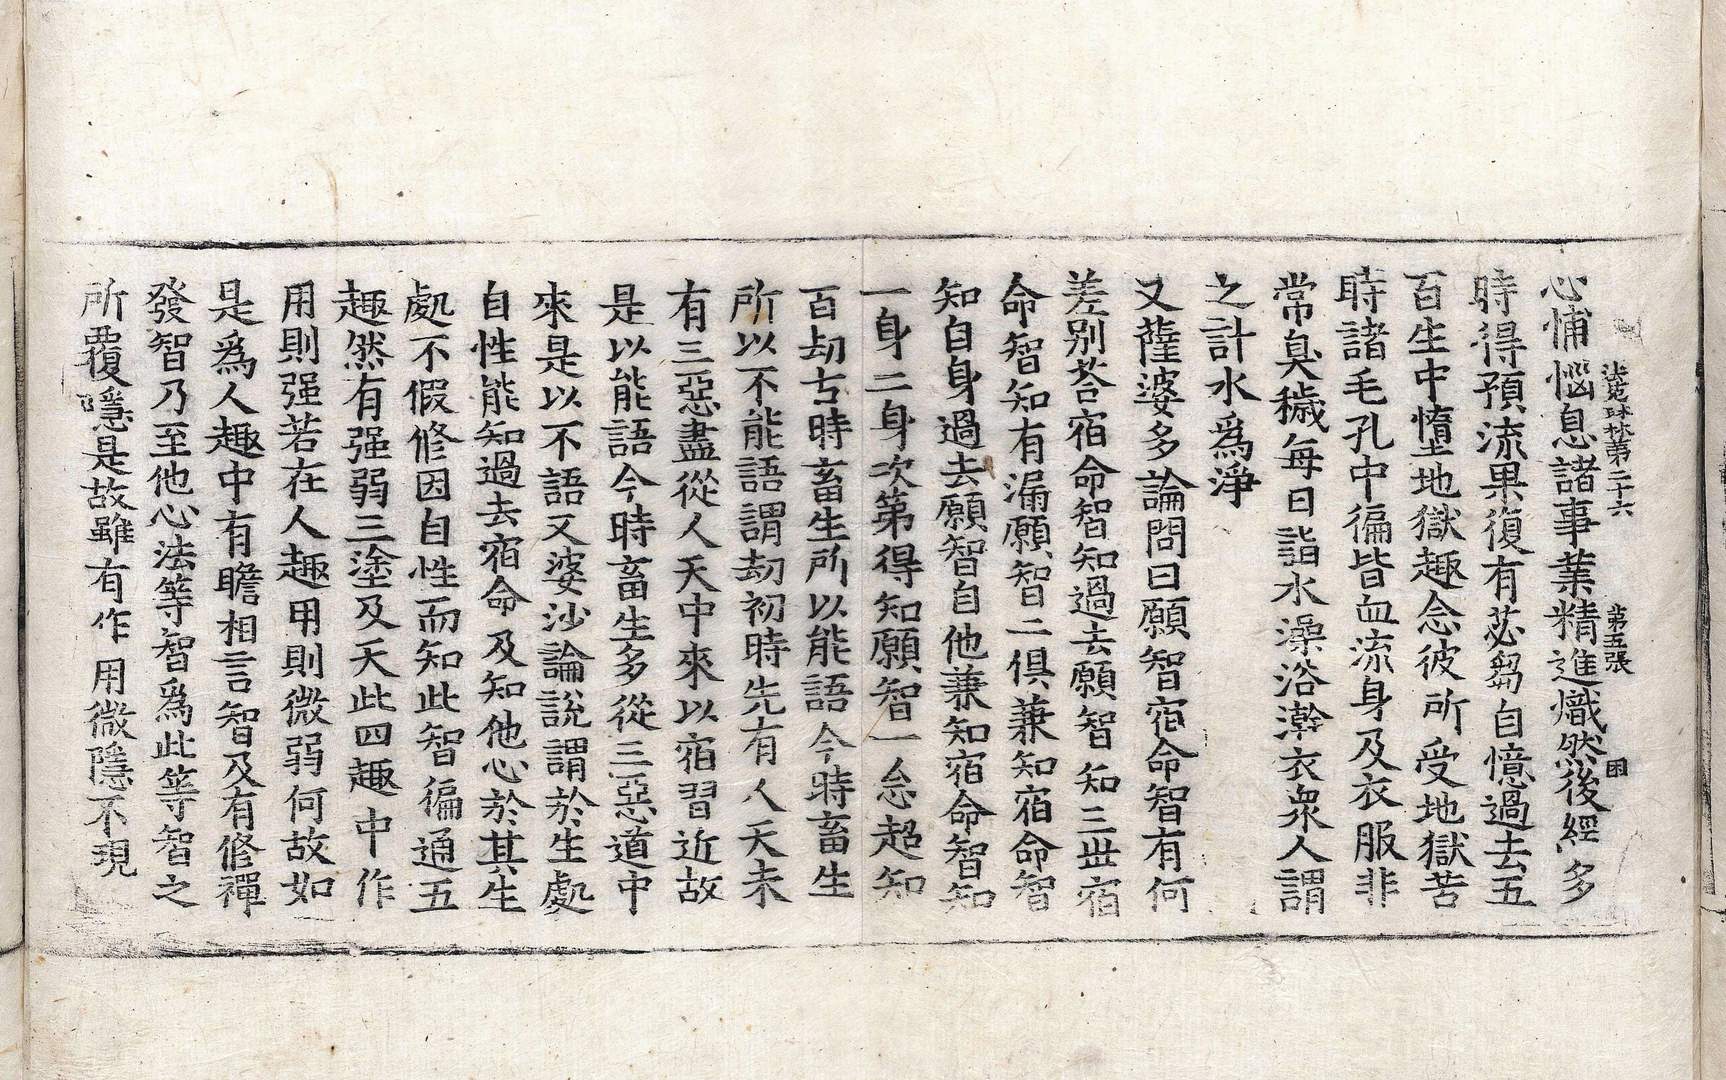 法苑珠林第二十六　第五張　困
心怖惱息諸事業精進熾然後經多
時得預流果復有苾芻自憶過去五
百生中墮地獄趣念彼所受地獄苦
時諸毛孔中徧皆血流身及衣服非
常臭穢每日詣水澡浴澣衣衆人謂
之計水爲淨
又薩婆多論問曰願智宿命智有何
差別荅宿命智知過去願智知三世宿
命智知有漏願智二俱兼知宿命智
知自身過去願智自他兼知宿命智知
一身二身次第得知願智一念超知
百劫古時畜生所以能語今時畜生
所以不能語謂劫初時先有人天未
有三惡盡從人天中來以宿習近故
是以能語今時畜生多從三惡道中
來是以不語又婆沙論說謂於生處
自性能知過去宿命及知他心於其生
處不假修因自性而知此智徧通五
趣然有强弱三塗及天此四趣中作
用則强若在人趣用則微弱何故如
是爲人趣中有瞻相言智及有修禪
發智乃至他心法等智爲此等智之
所覆隱是故雖有作用微隱不現